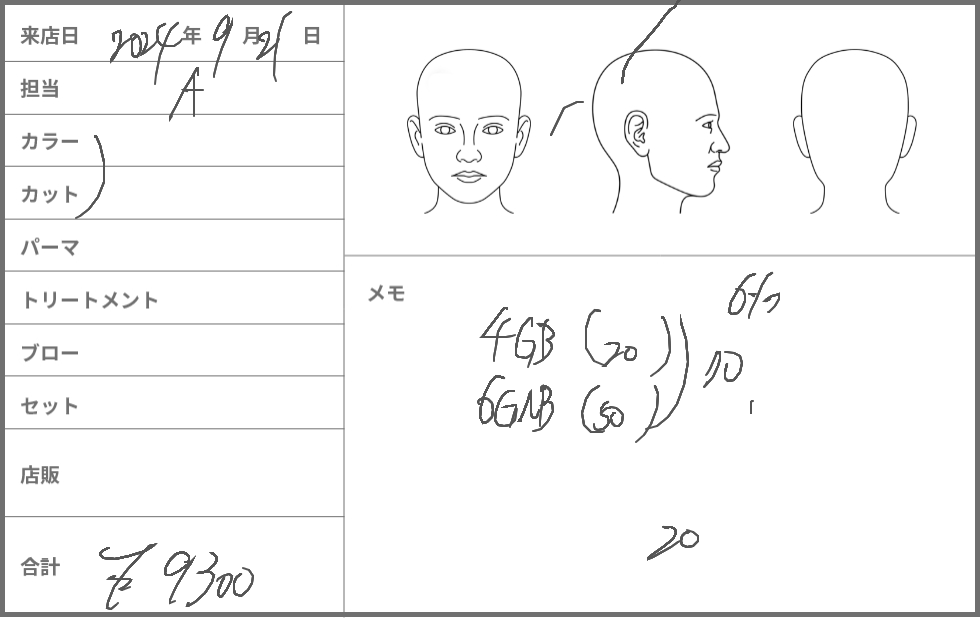 来店日 2024年 9月21日
担当 A
カラー
カット
パーマ
トリートメント
ブロー
セット
店販
合計 ¥9300
メモ
4GB (20)
6GNB (50)
10
20